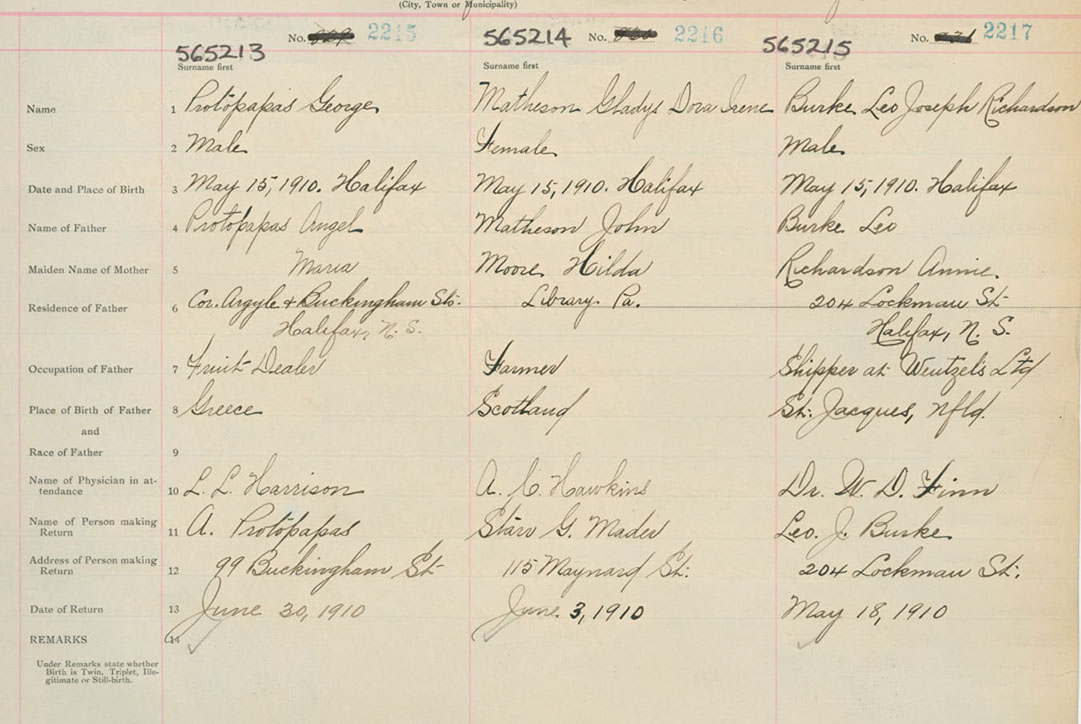 (City, Town or Municipality)
No. 2215 No. 2216 No. 2217
565213 565214 565215
Surname first Surname first Surname first
Name 1 Protopapas George Matheson Gladys Dora Irene Burke Leo Joseph Richardson
Sex 2 Male Female Male
Date and Place of Birth 3 May 15, 1910. Halifax May 15, 1910. Halifax May 15, 1910. Halifax
Name of Father 4 Protopapas Angel Matheson John Burke Leo
Maiden Name of Mother 5 Maria Moore Hilda Richardson Annie
Residence of Father 6 Cor. Argyle + Buckingham Sts. Library Pa. 204 Lockman St
Halifax, N. S. Halifax, N. S.
Occupation of Father 7 Fruit Dealer Farmer Shipper at Wentzel's Ltd
Place of Birth of Father 8 Greece Scotland St. Jacques, Nfld.
and
Race of Father 9
Name of Physician in at-
tendance 10 L. L. Harrison A. C. Hawkins Dr. W. D. Finn
Name of Person making
Return 11 A. Protopapas Starr G. Mader Leo. J. Burke
Address of Person making
Return 12 99 Buckingham St 115 Maynard St. 204 Lockman St.
Date of Return 13 June 30, 1910 June 3, 1910 May 18, 1910
REMARKS 14
Under Remarks state whether
Birth is Twin, Triplet, Ille-
gitimate or Still-birth.